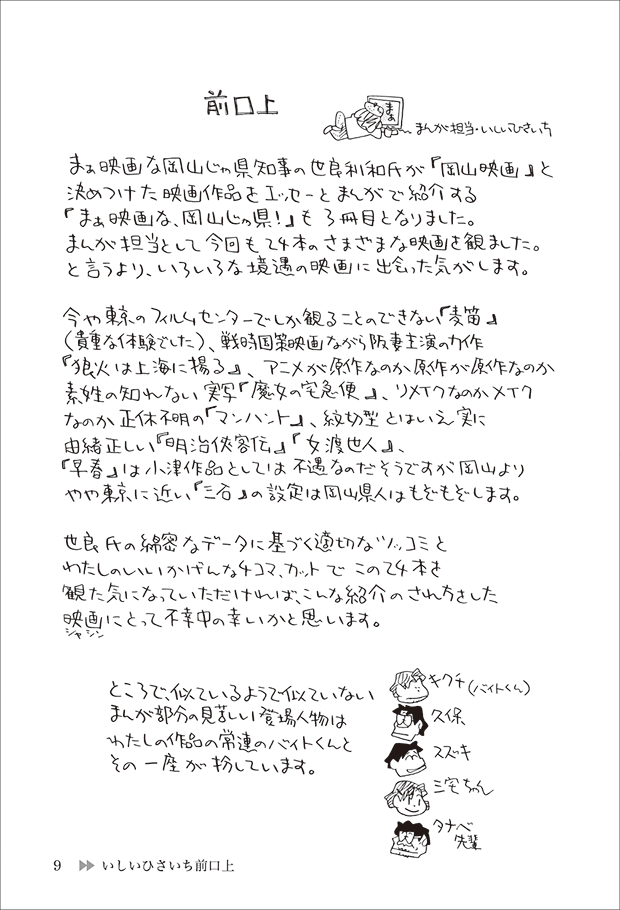 前口上
まぁ
まんが担当・いしいひさいち
まぁ映画な岡山じゃ県知事の世良利和氏が『岡山映画』と
決めつけた映画作品をエッセーとまんがで紹介する
『まぁ映画な、岡山じゃ県！』も3冊目となりました。
まんが担当として今回も24本のさまざまな映画を観ました。
と言うより、いろいろな境遇の映画に出会った気がします。
今や東京のフィルムセンターでしか観ることのできない『麦笛』
（貴重な体験でした）、戦時国策映画ながら阪妻主演の力作
『狼火は上海に揚る』、アニメが原作なのか原作が原作なのか
素姓の知れない実写『魔女の宅急便』、リメイクなのかメイク
なのか正体不明の『マンハント』、紋切型とはいえ実に
由緒正しい『明治侠客伝』『女渡世人』、
『早春』は小津作品としては不遇なのだそうですが岡山より
やや東京に近い『三石』の設定は岡山県人はもぞもぞします。
世良氏の綿密なデータに基づく適切なツッコミと
わたしのいいかげんな4コマ、カットでこの24本を
観た気になっていただければ、こんな紹介のされ方をした
映画にとって不幸中の幸いかと思います。
シャシン
ところで、似ているようで似ていない
まんが部分の見苦しい登場人物は
わたしの作品の常連のバイトくんと
その一座が扮しています。
キクチ（バイトくん）
久保
スズキ
三宅ちゃん
タナベ
先輩
9 ▶▶ いしいひさいち前口上